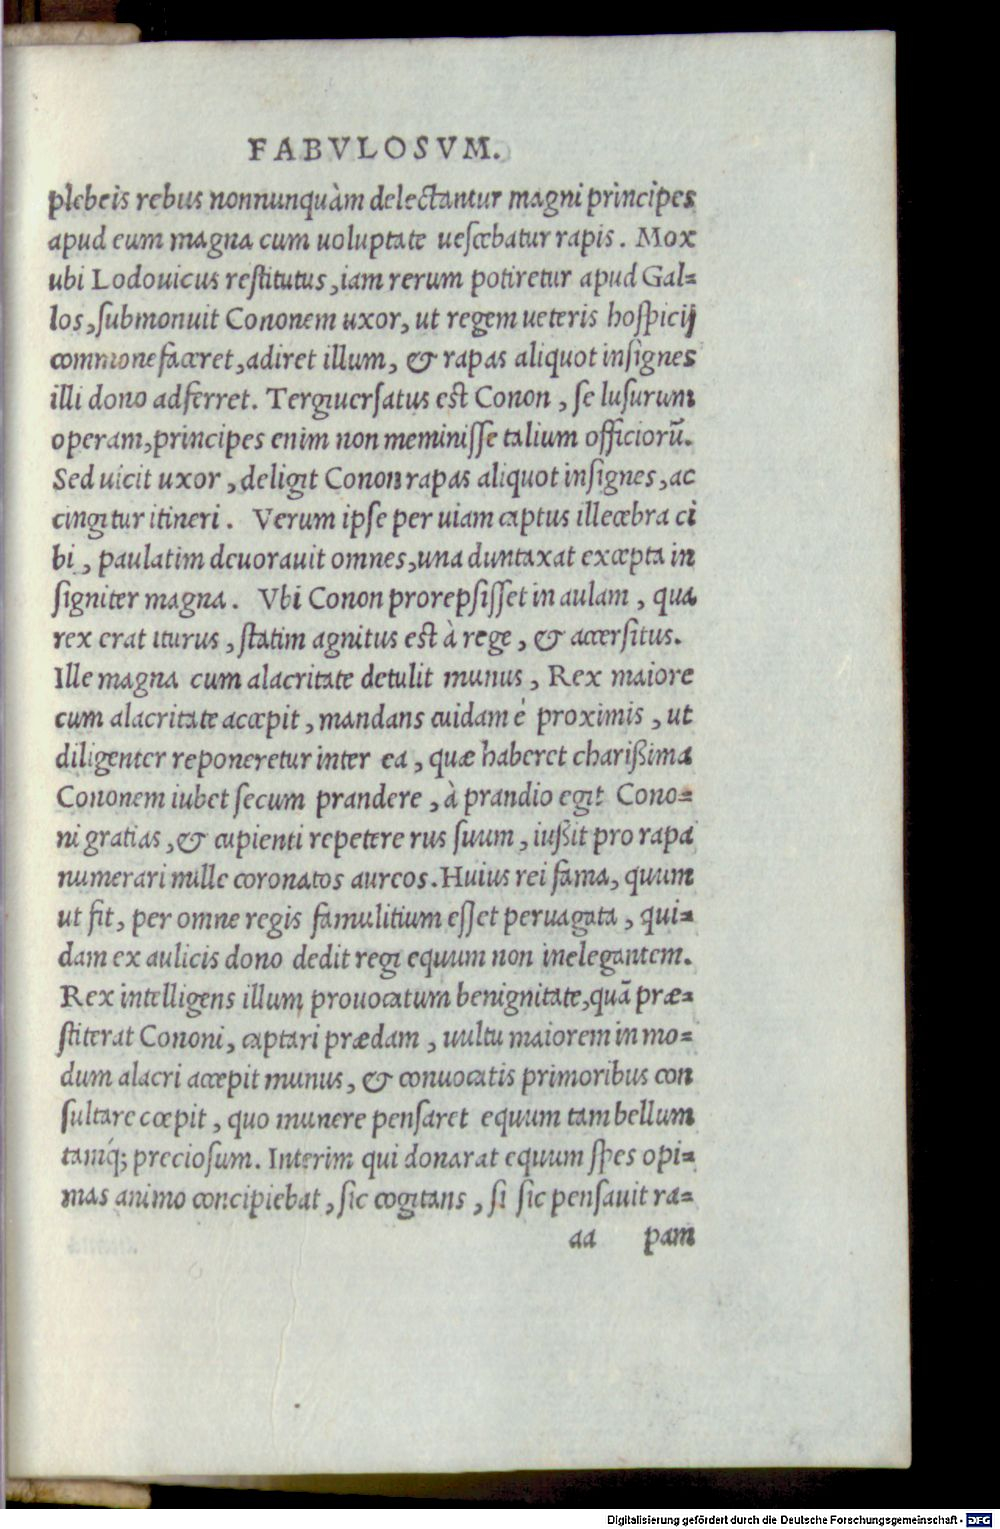 FABVLOSVM.
plebeis rebus nonnunquàm delectantur magni principes
apud eum magna cum uoluptate uescebatur rapis. Mox
ubi Lodouicus restitutus, iam rerum potiretur apud Gal=
los, submonuit Cononem uxor, ut regem ueteris hospicij
commonefaceret, adiret illum, & rapas aliquot insignes
illi dono adferret. Tergiuersatus est Conon, se lusurum
operam, principes enim non meminisse talium officiorũ.
Sed uicit uxor, deligit Conon rapas aliquot insignes, ac
cingitur itineri. Verum ipse per uiam captus illecebra ci
bi, paulatim deuorauit omnes, una duntaxat excepta in
signiter magna. Vbi Conon prorepsisset in aulam, qua
rex erat iturus, statim agnitus est à rege, & accersitus.
Ille magna cum alacritate detulit munus, Rex maiore
cum alacritate accepit, mandans cuidam è proximis, ut
diligenter reponeretur inter ea, quæ haberet charißima
Cononem iubet secum prandere, à prandio egit Cono=
ni gratias, & cupienti repetere rus suum, iußit pro rapa
numerari mille coronatos aureos. Huius rei fama, quum
ut fit, per omne regis famulitium esset peruagata, qui=
dam ex aulicis dono dedit regi equum non inelegantem.
Rex intelligens illum prouocatum benignitate, quã præ=
stiterat Cononi, captari prædam, uultu maiorem in mo=
dum alacri accepit munus, & conuocatis primoribus con
sultare cœpit, quo munere pensaret equum tam bellum
tamq́; preciosum. Interim qui donarat equum spes opi=
mas animo concipiebat, sic cogitans, si sic pensauit ra=
aa pam
Digitalisierung gefördert durch die Deutsche Forschungsgemeinschaft - DFG